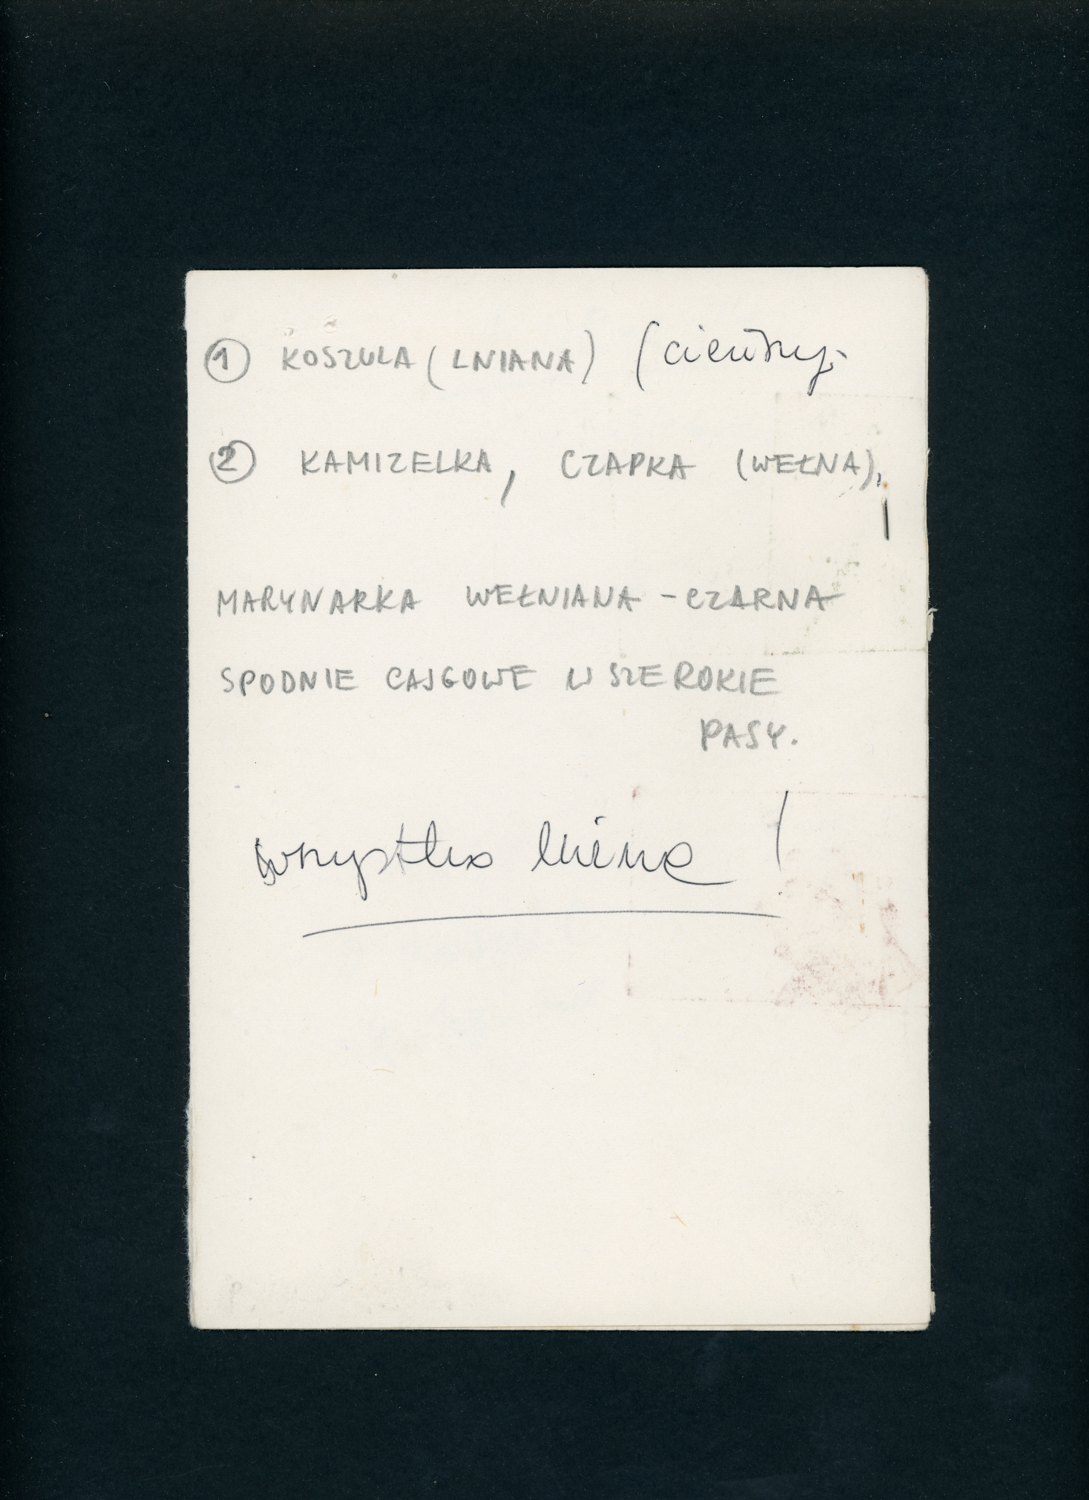 ① KOSZULA (LNIANA) (cienkzy
② KAMIZELKA, CZAPKA (WEŁNA),
MARYNARKA WEŁNIANA - CZARNA
SPODNIE CAJGOWE W SZEROKIE
PASY.
wszystko !